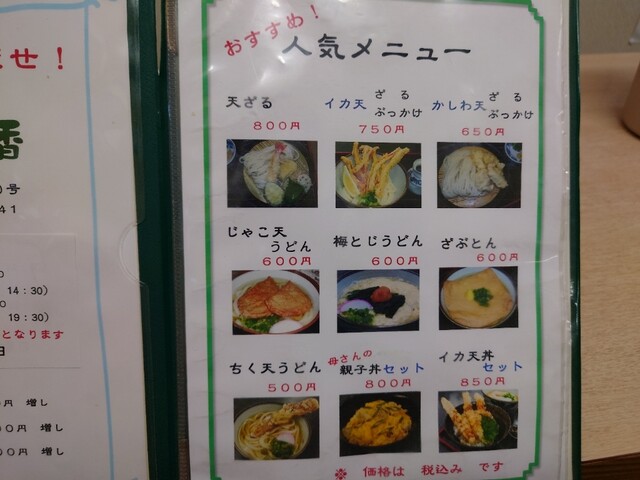 ませ！
番
０号
４１
14：30）
19：30）
となります
日
円 増し
００円 増し
００円 増し
おすすめ！
人気メニュー
天ざる
８００円
イカ天 ざる ぶっかけ
７５０円
かしわ天 ざる ぶっかけ
６５０円
じゃこ天
うどん
６００円
梅とじうどん
６００円
ざぶとん
６００円
ちく天うどん
５００円
母さんの
親子丼セット
８００円
イカ天丼
セット
８５０円
※ 価格は 税込み です